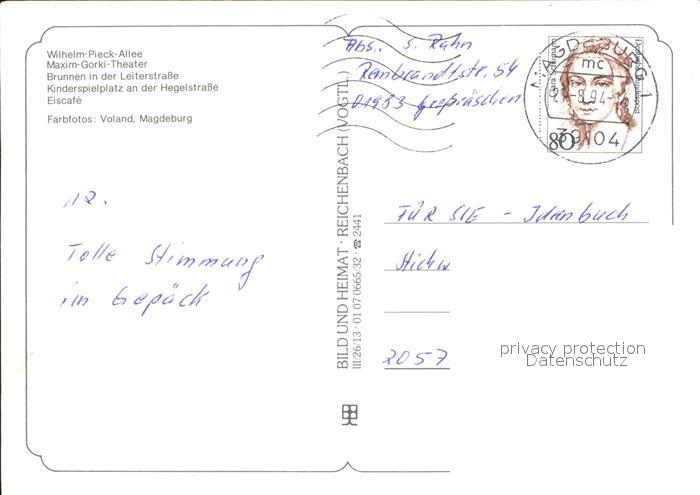 Wilhelm-Pieck-Allee
Maxim-Gorki-Theater
Brunnen in der Leiterstraße
Kinderspielplatz an der Hegelstraße
Eiscafé
Farbfotos: Voland, Magdeburg
12.
Tolle Stimmung
im Gepäck
BILD UND HEIMAT · REICHENBACH (VOGTL.)
III/26/13 · 01 07 0665/32 · ☎ 2441
Abs. S. Rahn
Rembrandtstr. 54
01983
MAGDEBURG 1
mc
8.94
39104
80
FÜR SIE - Ideenbuch
Stichw
2057
privacy protection
Datenschutz